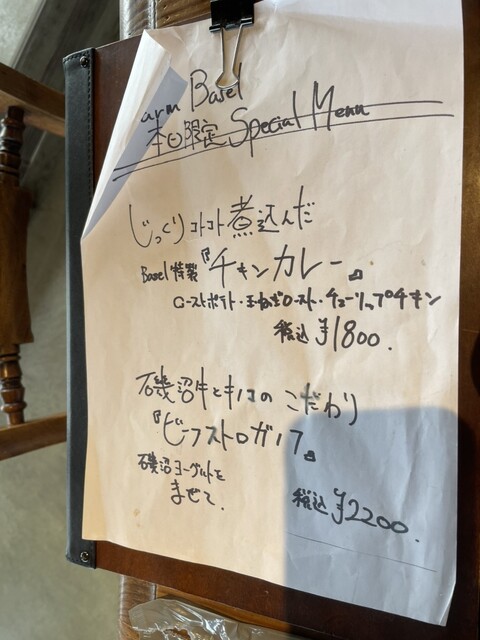 arm Basel
本日限定 Special Menu
じっくりコトコト煮込んだ
Basel特製『チキンカレー』
ローストポテト・玉ねぎロースト・チューリップチキン
税込 ¥1800.
磯沼牛とキノコの こだわり
『ビーフストロガノフ』
磯沼ヨーグルトを
まぜて.
税込 ¥2200.